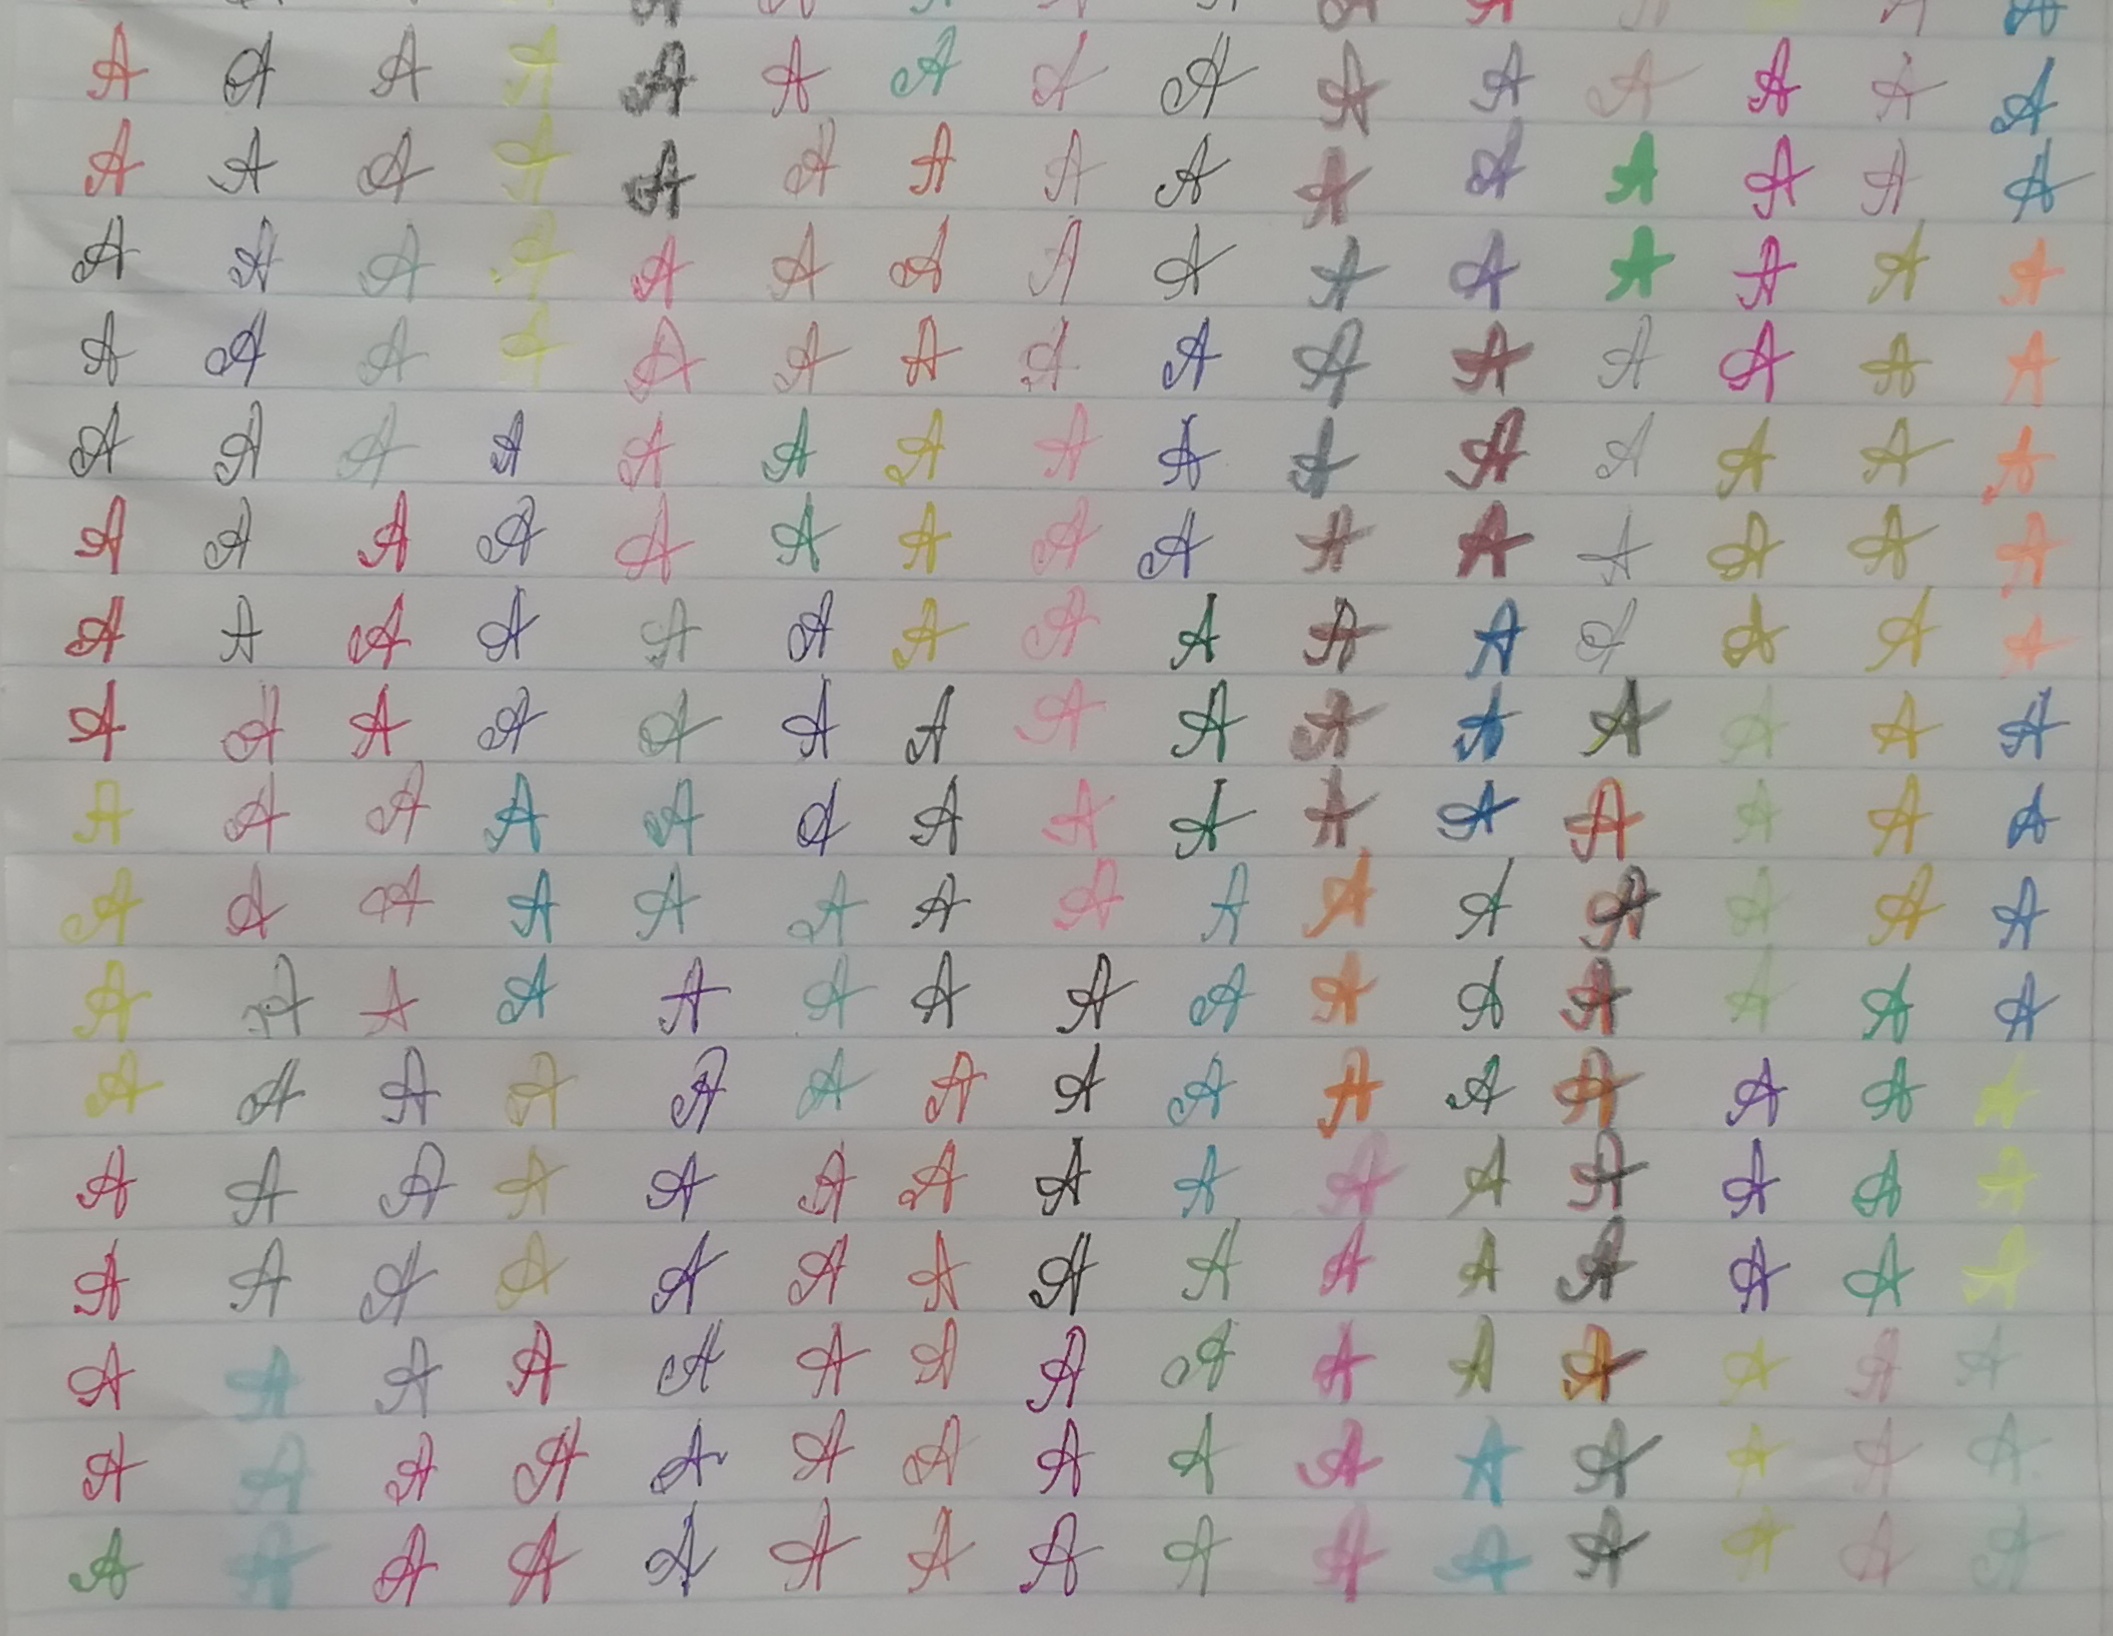 A A A A A A A A A A A A A A A
A A A A A A A A A A A A A A A
A A A A A A A A A A A A A A A
A A A A A A A A A A A A A A A
A A A A A A A A A A A A A A A
A A A A A A A A A A A A A A A
A A A A A A A A A A A A A A A
A A A A A A A A A A A A A A A
A A A A A A A A A A A A A A A
A A A A A A A A A A A A A A A
A A A A A A A A A A A A A A A
A A A A A A A A A A A A A A A
A A A A A A A A A A A A A A A
A A A A A A A A A A A A A A A
A A A A A A A A A A A A A A A
A A A A A A A A A A A A A A A
A A A A A A A A A A A A A A A